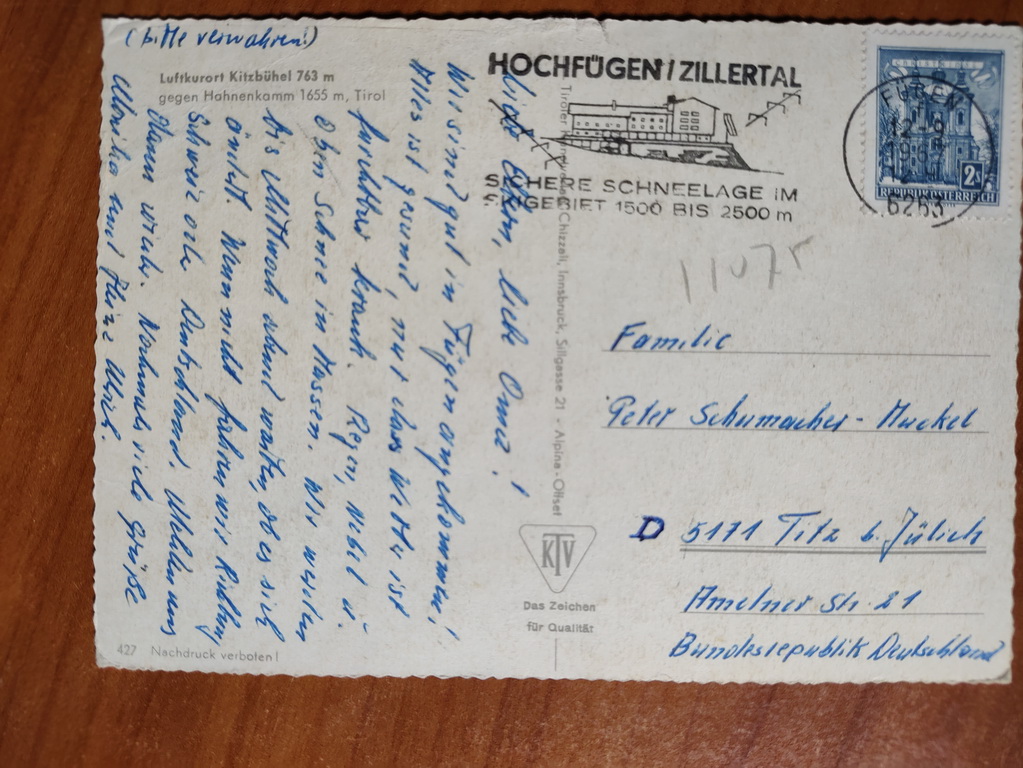 (bitte verwahren!)
Luftkurort Kitzbühel 763 m
gegen Hahnenkamm 1655 m, Tirol
Liebe Eltern, liebe Oma!
Wir sind gut in Fügen angekommen!
Alles ist gesund, nur das Wetter ist
furchtbar krank. Regen, Nebel u.
oben Schnee in Massen. Wir wollen
bis Mittwoch abend warten, ob es sich
ändert. Wenn nicht fahren wir Richtung
Schweiz oder Deutschland.
Nochmals viele Grüße
und Ulrich.
427 Nachdruck verboten!
Chizzali, Innsbruck, Sillgasse 21 - Alpina-Offset
KTV
Das Zeichen
für Qualität
HOCHFÜGEN/ZILLERTAL
SICHERE SCHNEELAGE IM
SKIGEBIET 1500 BIS 2500 m
FÜGEN
12-9
6263
2
REPUBLIK ÖSTERREICH
11075
Familie
Peter Schumacher-Muckel
D 5171 Titz b. Jülich
Amelner Str. 21
Bundesrepublik Deutschland